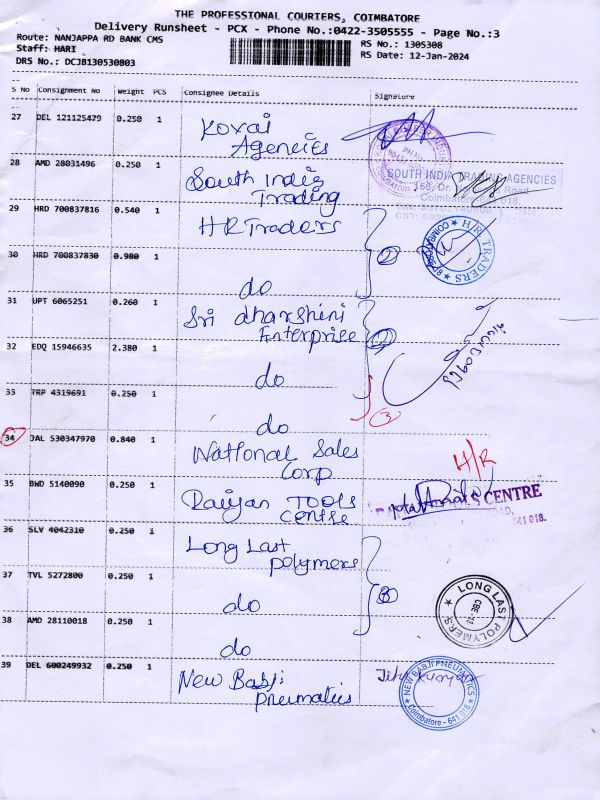 THE PROFESSIONAL COURIERS, COIMBATORE
Delivery Runsheet - PCX - Phone No.:0422-3505555 - Page No.:3
Route: NANJAPPA RD BANK CMS
RS No.: 1305308
Staff: HARI
RS Date: 12-Jan-2024
DRS No.: DCJB130530803
S No Consignment No Weight PCS Consignee Details Signature
27 DEL 121125479 0.250 1 Kovai
Agencies
28 AMD 28031496 0.250 1 South India
Trading
SOUTH INDIA TRADING AGENCIES
29 HRD 700837816 0.540 1 HR Traders
H/R TRADERS
COIMBATORE
30 HRD 700837830 0.980 1 do
2
31 UPT 6065251 0.260 1 Sri dharshini
Enterprise
32 EDQ 15946635 2.380 1 do
33 TRP 4319691 0.250 1 do
3
34 JAL 530347970 0.840 1 National Sales
Corp
H/R
35 BWD 5140090 0.250 1 Raijan Tools
Centre
CENTRE
641 018.
36 SLV 4042310 0.250 1 Long Last
polymers
37 TVL 5272800 0.250 1 do
3
LONG LAST POLYMERS
CBE-18
38 AMD 28110018 0.250 1 do
39 DEL 600249932 0.250 1 New Babji
pneumatics
NEW BABJI PNEUMATICS
Coimbatore - 641 018